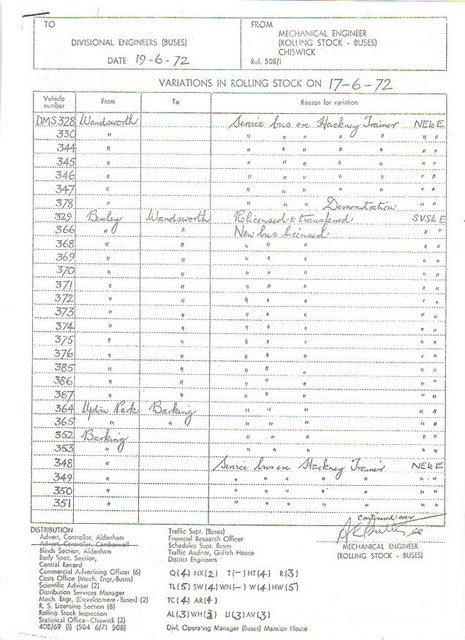 TO
DIVISIONAL ENGINEERS (BUSES)
DATE 19-6-72
FROM
MECHANICAL ENGINEER
(ROLLING STOCK - BUSES)
CHISWICK
Ref. 508/1
VARIATIONS IN ROLLING STOCK ON 17-6-72
Vehicle number From To Reason for variation
DMS 328 Wandsworth Service bus ex Hackney Trainer NE&E
330 " " " " " " "
344 " " " " " " "
345 " " " " " " "
346 " " " " " " "
347 " " " " " " "
378 " " " " Demonstration " "
329 Bexley Wandsworth Relicensed & transferred SV&E
366 " " New bus licensed " "
368 " " " " " " "
369 " " " " " " "
370 " " " " " " "
371 " " " " " " "
372 " " " " " " "
373 " " " " " " "
374 " " " " " " "
375 " " " " " " "
376 " " " " " " "
385 " " " " " " "
386 " " " " " " "
387 " " " " " " "
364 Upton Park Barking " " " " "
365 " " " " " " "
352 Barking " " " " "
353 " " " " " "
348 Service bus ex Hackney Trainer NE&E
349 " " " " " " "
350 " " " " " " "
351 " " " " " " "
continued over
MECHANICAL ENGINEER
(ROLLING STOCK - BUSES)
DISTRIBUTION
Advert. Controller, Aldenham
Advert. Controller, Camberwell
Blinds Section, Aldenham
Body Spec. Section,
Central Record
Commercial Advertising Officer (6)
Costs Office (Mech. Engr. Buses)
Scientific Adviser (2)
Distribution Services Manager
Mech. Engr. (Development - Buses) (2)
R. S. Licensing Section (8)
Rolling Stock Inspection
Statistical Office - Chiswick (2)
408/69 (1) (504 6/71 508)
Traffic Supt. (Buses)
Financial Research Officer
Schedules Supt. Buses
Traffic Auditor, Griffith House
District Engineers
Q(4) NX(2) T(-) HT(4) R(3)
TL(5) SW(4) WN(-) W(4) HW(5)
TC(4) AR(4)
AL(3) WH(3) U(3) AV(3)
Divl. Operating Manager (Buses) Mansion House